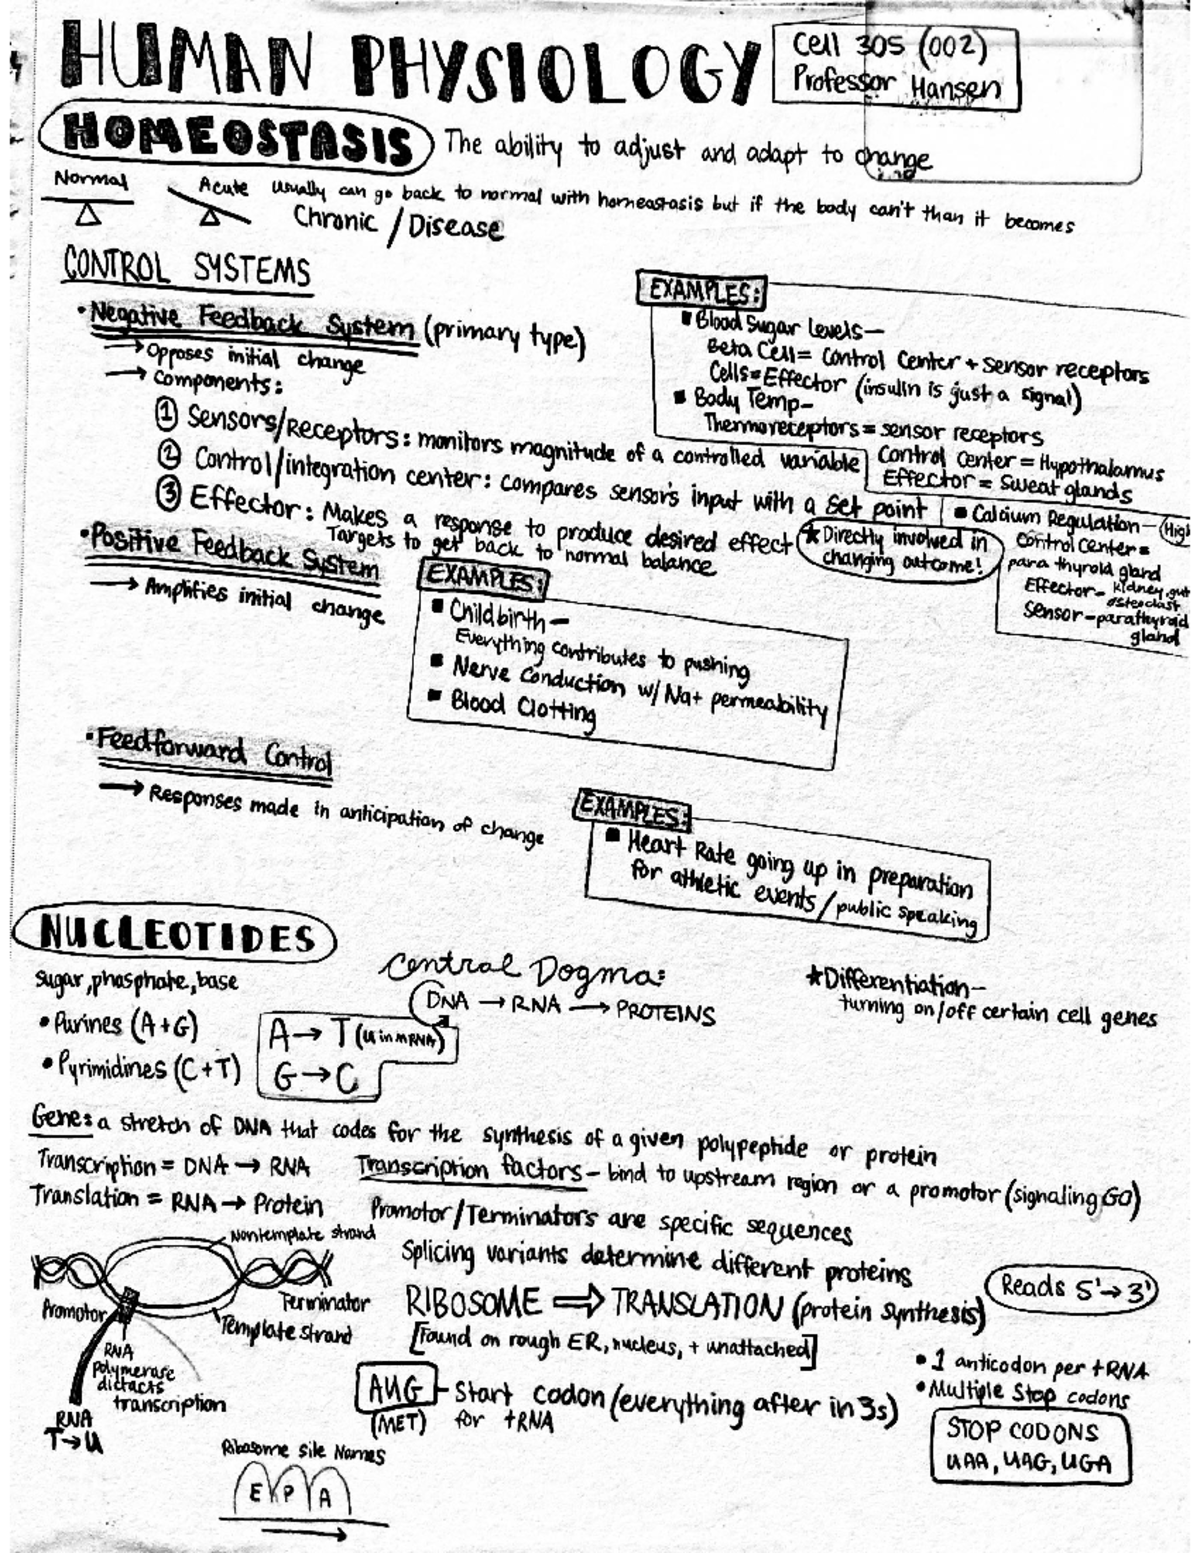 HUMAN PHYSIOLOGY
Cell 305 (002)
Professor Hansen
HOMEOSTASIS
The ability to adjust and adapt to change
Normal
Acute
Usually can go back to normal with homeostasis but if the body can't than it becomes
Chronic / Disease
CONTROL SYSTEMS
• Negative Feedback System (primary type)
→ Opposes initial change
→ Components:
① Sensors/Receptors: monitors magnitude of a controlled variable
② Control/integration center: compares sensor's input with a set point
③ Effector: Makes a response to produce desired effect
Targets to get back to normal balance
★ Directly involved in
changing outcome!
EXAMPLES:
▪ Blood Sugar Levels—
Beta Cell = Control Center + sensor receptors
Cells = Effector (insulin is just a signal)
▪ Body Temp—
Thermoreceptors = sensor receptors
Control Center = Hypothalamus
Effector = Sweat glands
▪ Calcium Regulation — High
Control Center =
para thyroid gland
Effector — kidney, gut
osteoclast
Sensor — parathyroid
gland
• Positive Feedback System
→ Amplifies initial change
EXAMPLES:
▪ Childbirth—
Everything contributes to pushing
▪ Nerve Conduction w/ Na+ permeability
▪ Blood Clotting
• Feedforward Control
→ Responses made in anticipation of change
EXAMPLES:
▪ Heart Rate going up in preparation
for athletic events / public speaking
NUCLEOTIDES
sugar, phosphate, base
• Purines (A+G)
• Pyrimidines (C+T)
A → T (U in mRNA)
G → C
Central Dogma:
DNA → RNA → PROTEINS
★ Differentiation—
turning on/off certain cell genes
Gene: a stretch of DNA that codes for the synthesis of a given polypeptide or protein
Transcription = DNA → RNA
Transcription factors — bind to upstream region or a promotor (signaling GO)
Translation = RNA → Protein
Promotor/Terminators are specific sequences
Splicing variants determine different proteins
Nontemplate strand
Promotor
Terminator
Template strand
RNA
polymerase
dictacts
transcription
RNA
T → U
RIBOSOME ⇒ TRANSLATION (protein synthesis)
Reads 5' → 3'
[Found on rough ER, nucleus, + unattached]
AUG — Start codon (everything after in 3s)
(MET) for tRNA
• 1 anticodon per tRNA
• Multiple Stop codons
STOP CODONS
UAA, UAG, UGA
Ribosome Site Names
E P A